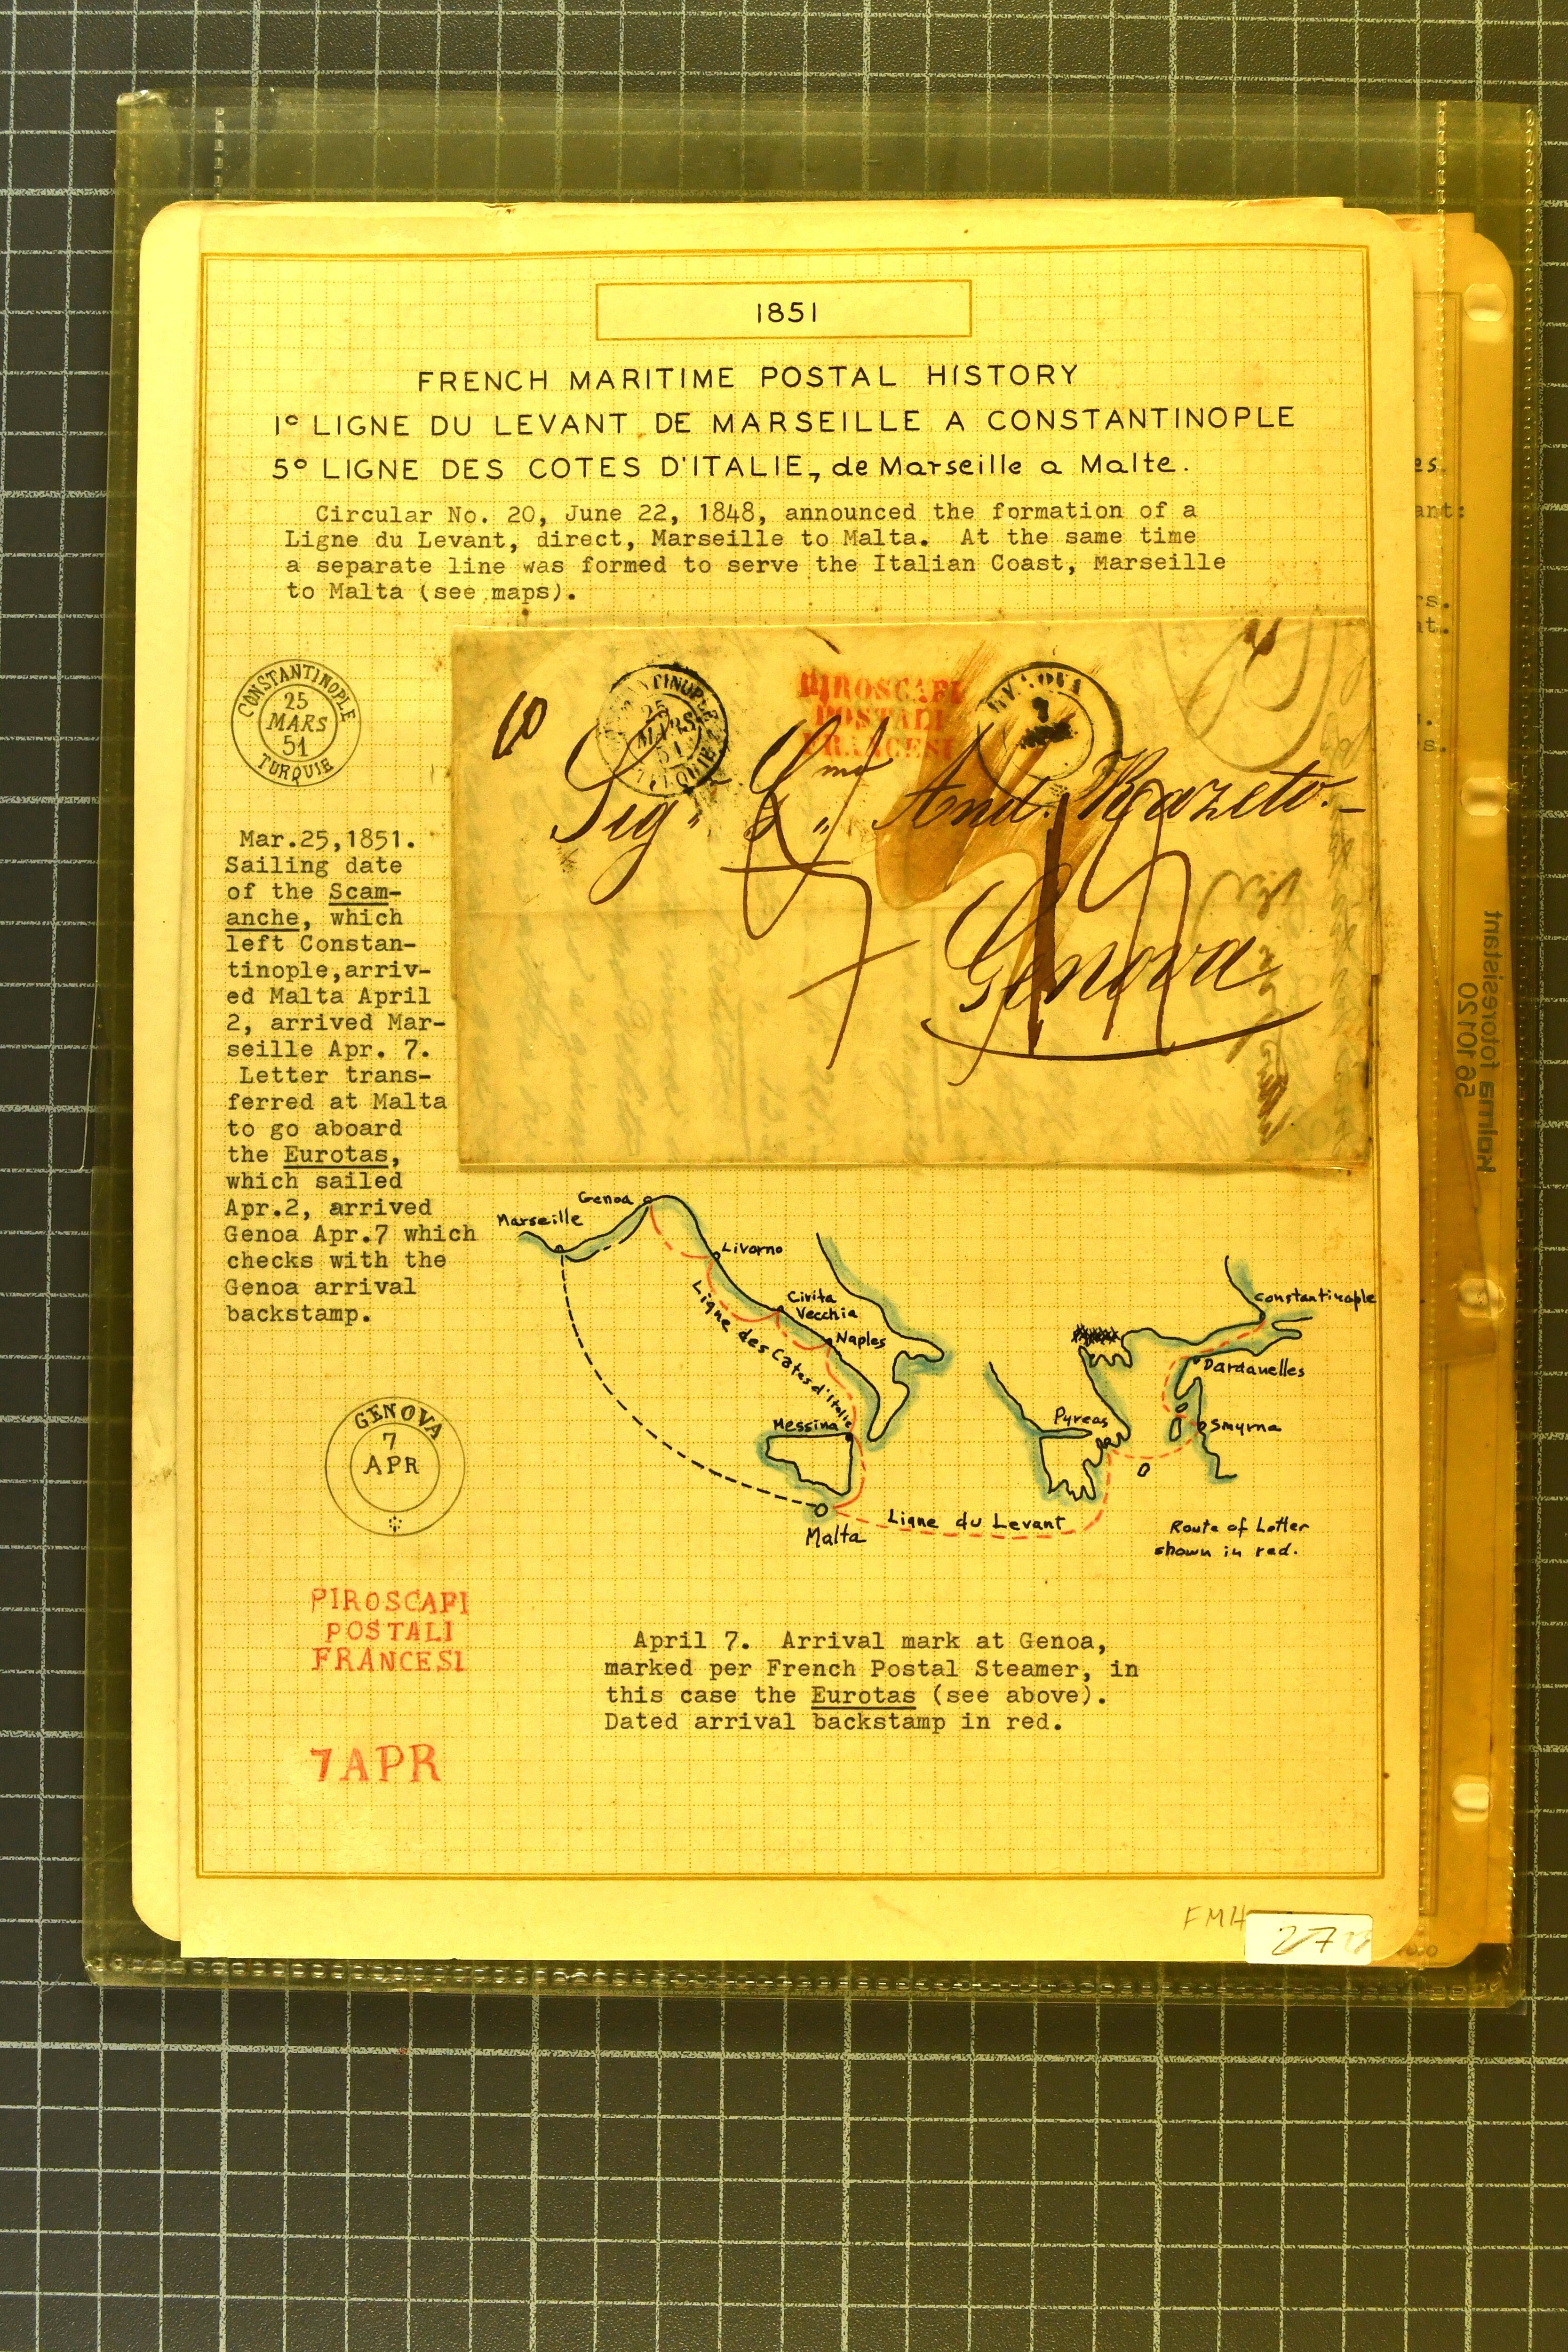 1851
FRENCH MARITIME POSTAL HISTORY
1º LIGNE DU LEVANT DE MARSEILLE A CONSTANTINOPLE
5º LIGNE DES COTES D'ITALIE, de Marseille a Malte.
Circular No. 20, June 22, 1848, announced the formation of a
Ligne du Levant, direct, Marseille to Malta. At the same time
a separate line was formed to serve the Italian Coast, Marseille
to Malta (see maps).
CONSTANTINOPLE
25
MARS
51
TURQUIE
Mar.25,1851.
Sailing date
of the Scam-
anche, which
left Constan-
tinople,arriv-
ed Malta April
2, arrived Mar-
seille Apr. 7.
Letter trans-
ferred at Malta
to go aboard
the Eurotas,
which sailed
Apr.2, arrived
Genoa Apr.7 which
checks with the
Genoa arrival
backstamp.
25
MARS
51
PIROSCAFI
POSTALI
FRANCESI
GENOVA
7
Sig. And. Razeto.
Genova
Marseille
Genoa
Livorno
Civita
Vecchia
Naples
Ligne des Cotes d'Italie
Messina
Malta
Ligne du Levant
Pyreas
Constantinople
Dardanelles
Smyrna
Route of Letter
shown in red.
GENOVA
7
APR
PIROSCAFI
POSTALI
FRANCESI
7 APR
April 7. Arrival mark at Genoa,
marked per French Postal Steamer, in
this case the Eurotas (see above).
Dated arrival backstamp in red.
FMH
27
es.
ant:
rs.
at.
Kalma fotoresistant
5610120